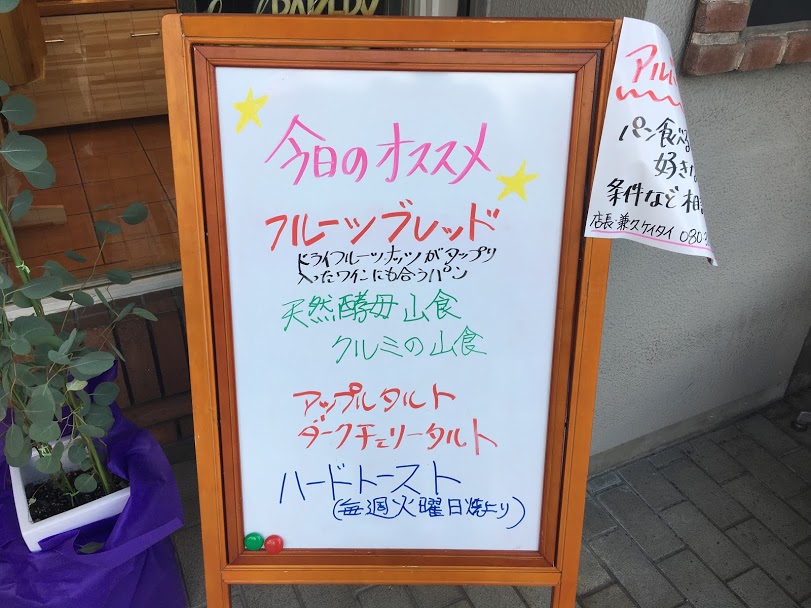 今日のオススメ
フルーツブレッド
ドライフルーツナッツがタップリ
入ったワインにも合うパン
天然酵母山食
クルミの山食
アップルタルト
ダークチェリータルト
ハードトースト
(毎週火曜日焼より)
アル
パン食べる
好き
条件など相
店長兼久ケイタイ 080